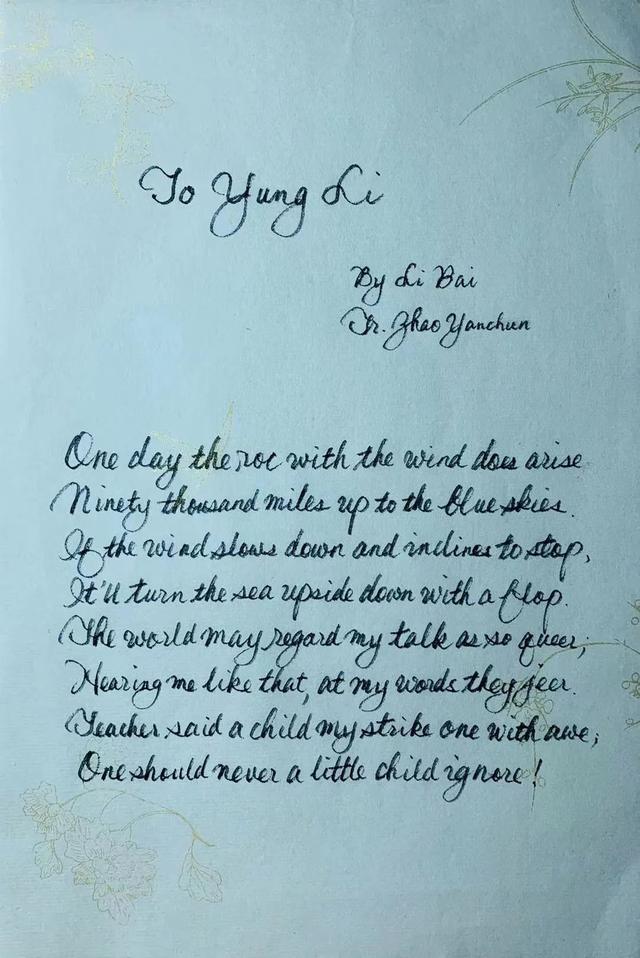 To Yung Li
By Li Bai
Tr. Zhao Yanchun
One day the roc with the wind does arise
Ninety thousand miles up to the blue skies.
If the wind slows down and inclines to stop,
It'll turn the sea upside down with a flop.
The world may regard my talk as so queer;
Hearing me like that, at my words they jeer.
Teacher said a child my strike one with awe;
One should never a little child ignore!